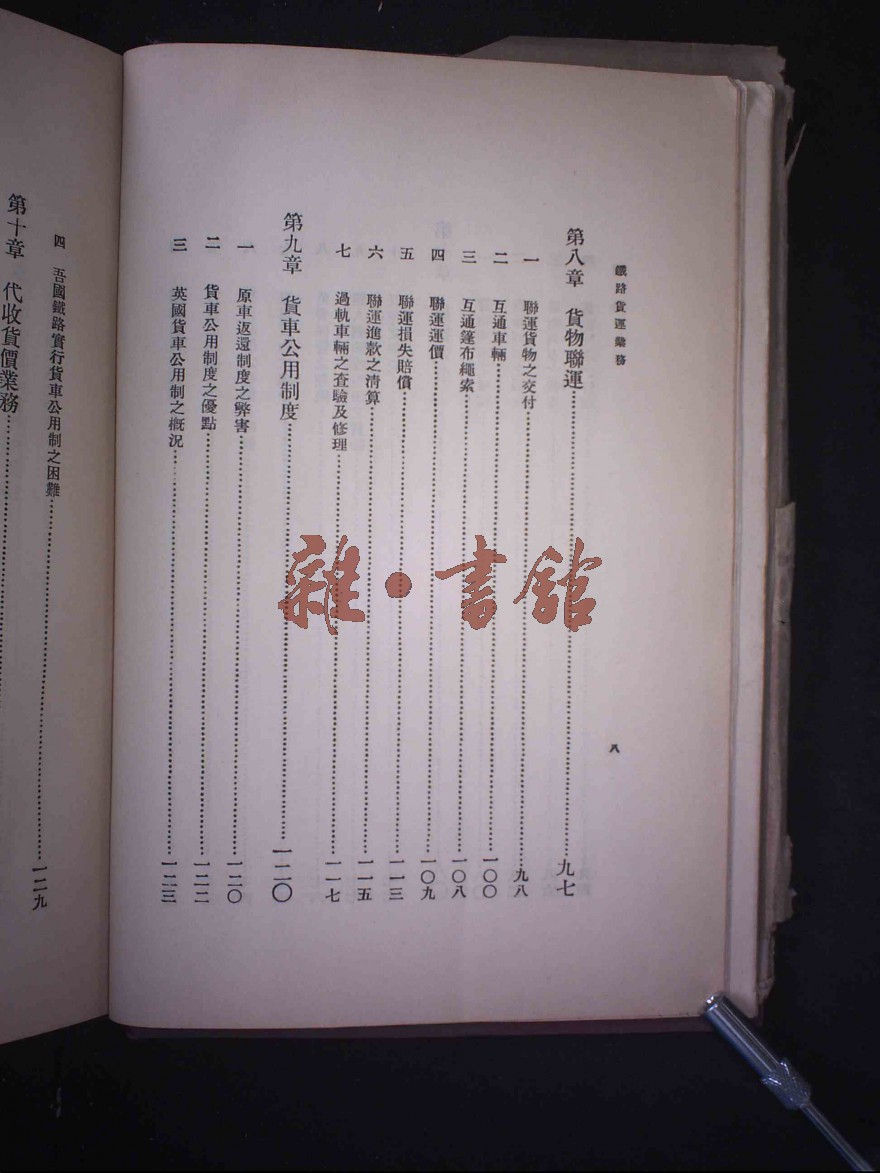 鐵路貨運業務
八
第八章 貨物聯運……九七
一 聯運貨物之交付……九八
二 互通車輛……一〇〇
三 互通篷布繩索……一〇八
四 聯運運價……一〇九
五 聯運損失賠償……一一三
六 聯運進款之清算……一一五
七 過軌車輛之查驗及修理……一一七
第九章 貨車公用制度……一二〇
一 原車返還制度之弊害……一二〇
二 貨車公用制度之優點……一二二
三 英國貨車公用制之概況……一二三
四 吾國鐵路實行貨車公用制之困難……一二九
第十章 代收貨價業務……
雜·書館